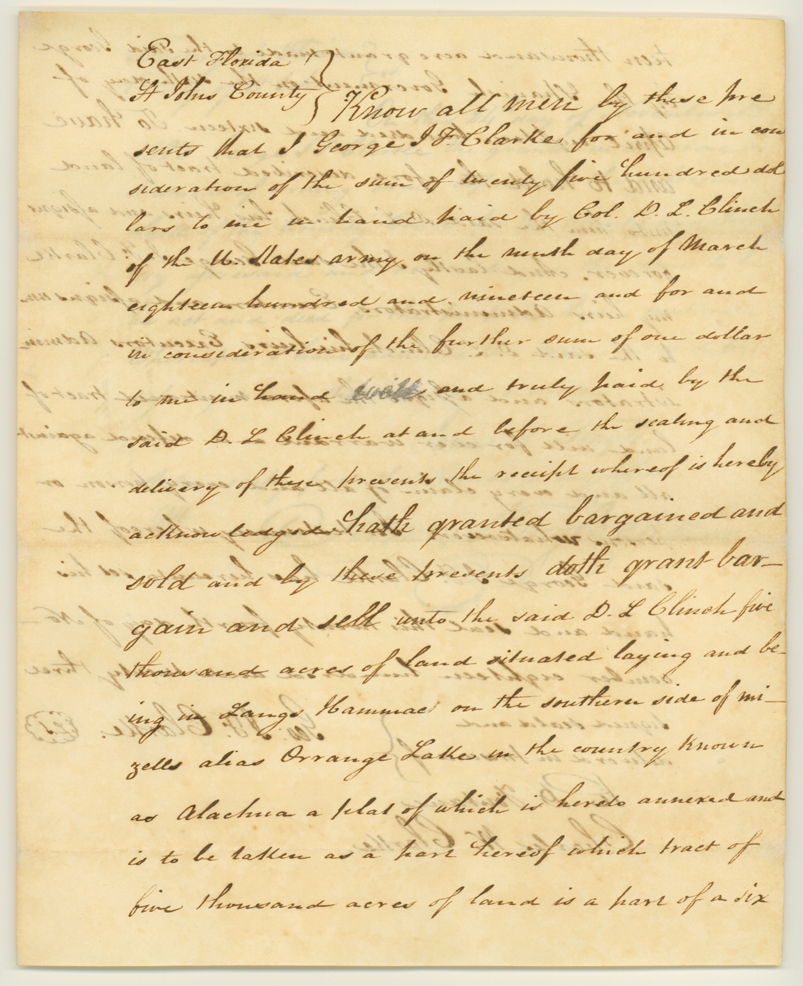 East Florida
St Johns County } Know all men by these pre
sents that I George J. F. Clarke for and in con
sideration of the sum of twenty five hundred dol
lars to me in hand paid by Col. D. L. Clinch
of the U. States army on the ninth day of March
eighteen hundred and nineteen and for and
in consideration of the further sum of one dollar
to me in hand well and truly paid by the
said D. L Clinch at and before the sealing and
delivery of these presents the receipt whereof is hereby
acknowledged hath granted bargained and
sold and by these presents doth grant bar-
gain and sell unto the said D. L Clinch five
thousand acres of land situated laying and be-
ing in Langs Hammac on the southern side of mi-
zells alias Orrange Lake in the country known
as Alachua a plat of which is hereto annexed and
is to be taken as a part hereof which tract of
five thousand acres of land is a part of a six